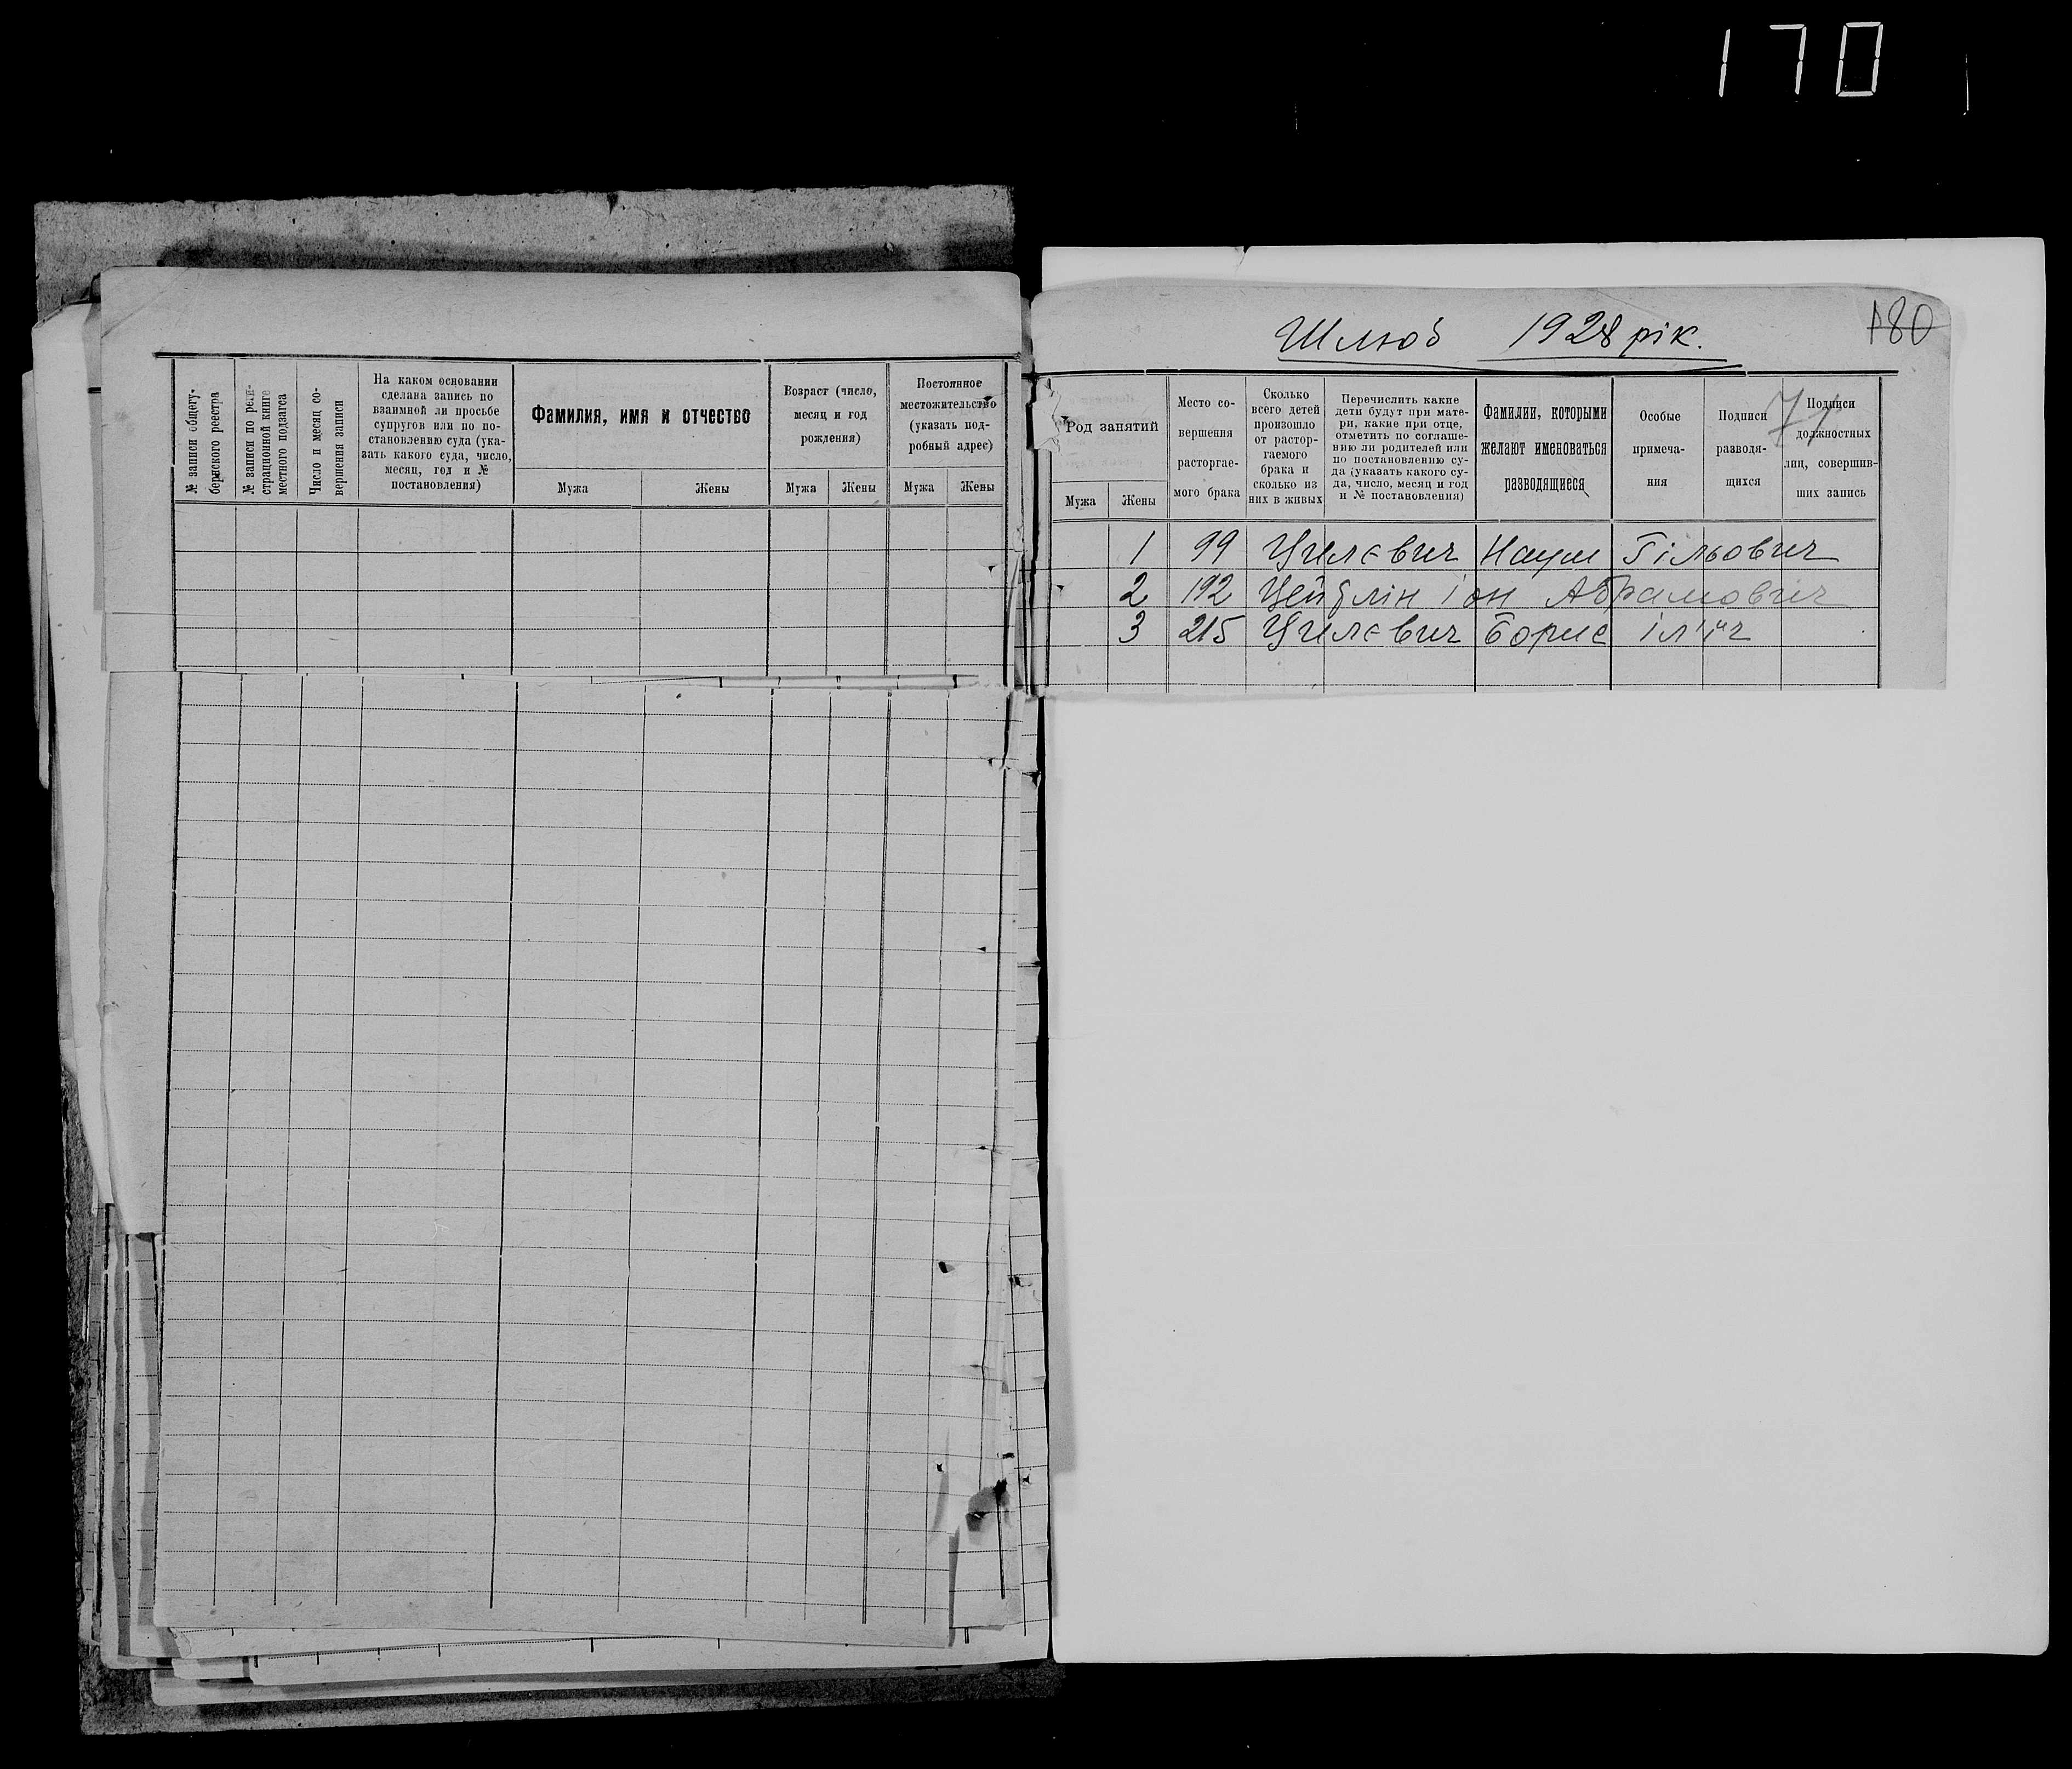 170
№ записи общегу-
бернского реестра
№ записи по реги-
страционной книге
местного подзагса
Число и месяц со-
вершения записи
На каком основании
сделана запись по
взаимной ли просьбе
супругов или по по-
становлению суда (ука-
зать какого суда, число,
месяц, год и №
постановления)
Фамилия, имя и отчество
Мужа Жены
Возраст (число,
месяц и год
рождения)
Мужа Жены
Постоянное
местожительство
(указать под-
робный адрес)
Мужа Жены
Шлюб 1928 рік.
180
71
Род занятий
Мужа Жены
Место со-
вершения
расторгае-
мого брака
Сколько
всего детей
произошло
от растор-
гаемого
брака и
сколько из
них в живых
Перечислить какие
дети будут при мате-
ри, какие при отце,
отметить по соглаше-
нию ли родителей или
по постановлению су-
да (указать какого су-
да, число, месяц и год
и № постановления)
Фамилии, которыми
желают именоваться
разводящиеся
Особые
примеча-
ния
Подписи
разводя-
щихся
Подписи
должностных
лиц, совершив-
ших запись
1 99 Цилєвич Наум Гільович
2 192 Цейтлін Іон Абрамович
3 215 Цилєвич Борис Ілліч